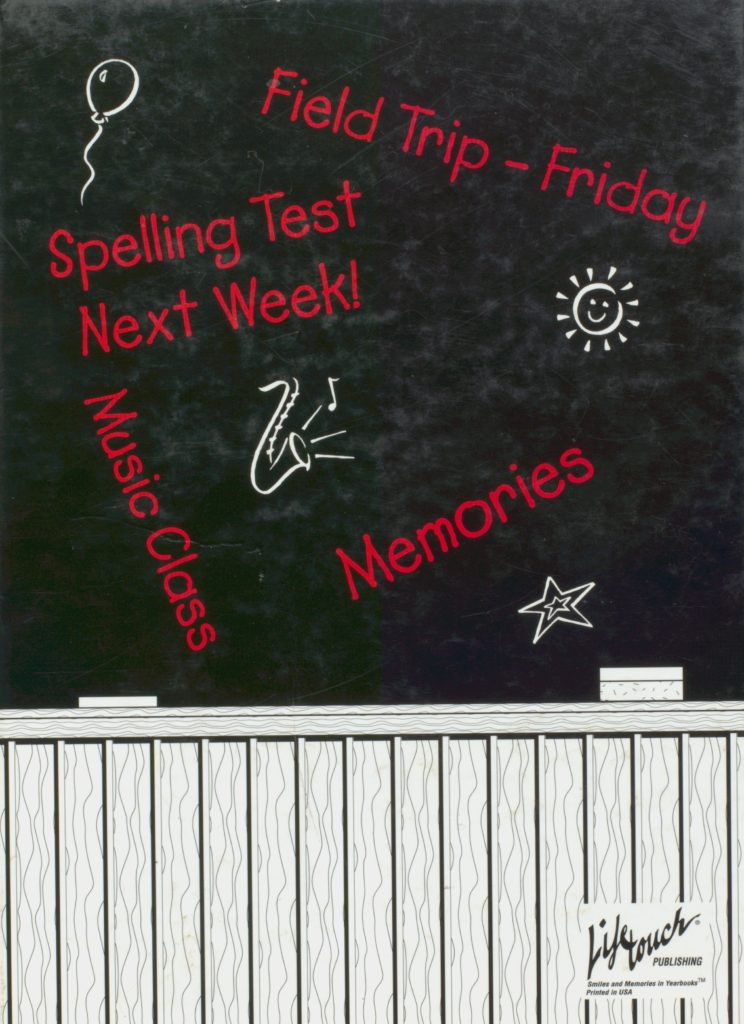 Field Trip – Friday
Spelling Test
Next Week!
Music Class
Memories
Lifetouch®
PUBLISHING
Smiles and Memories in Yearbooks™
Printed in USA